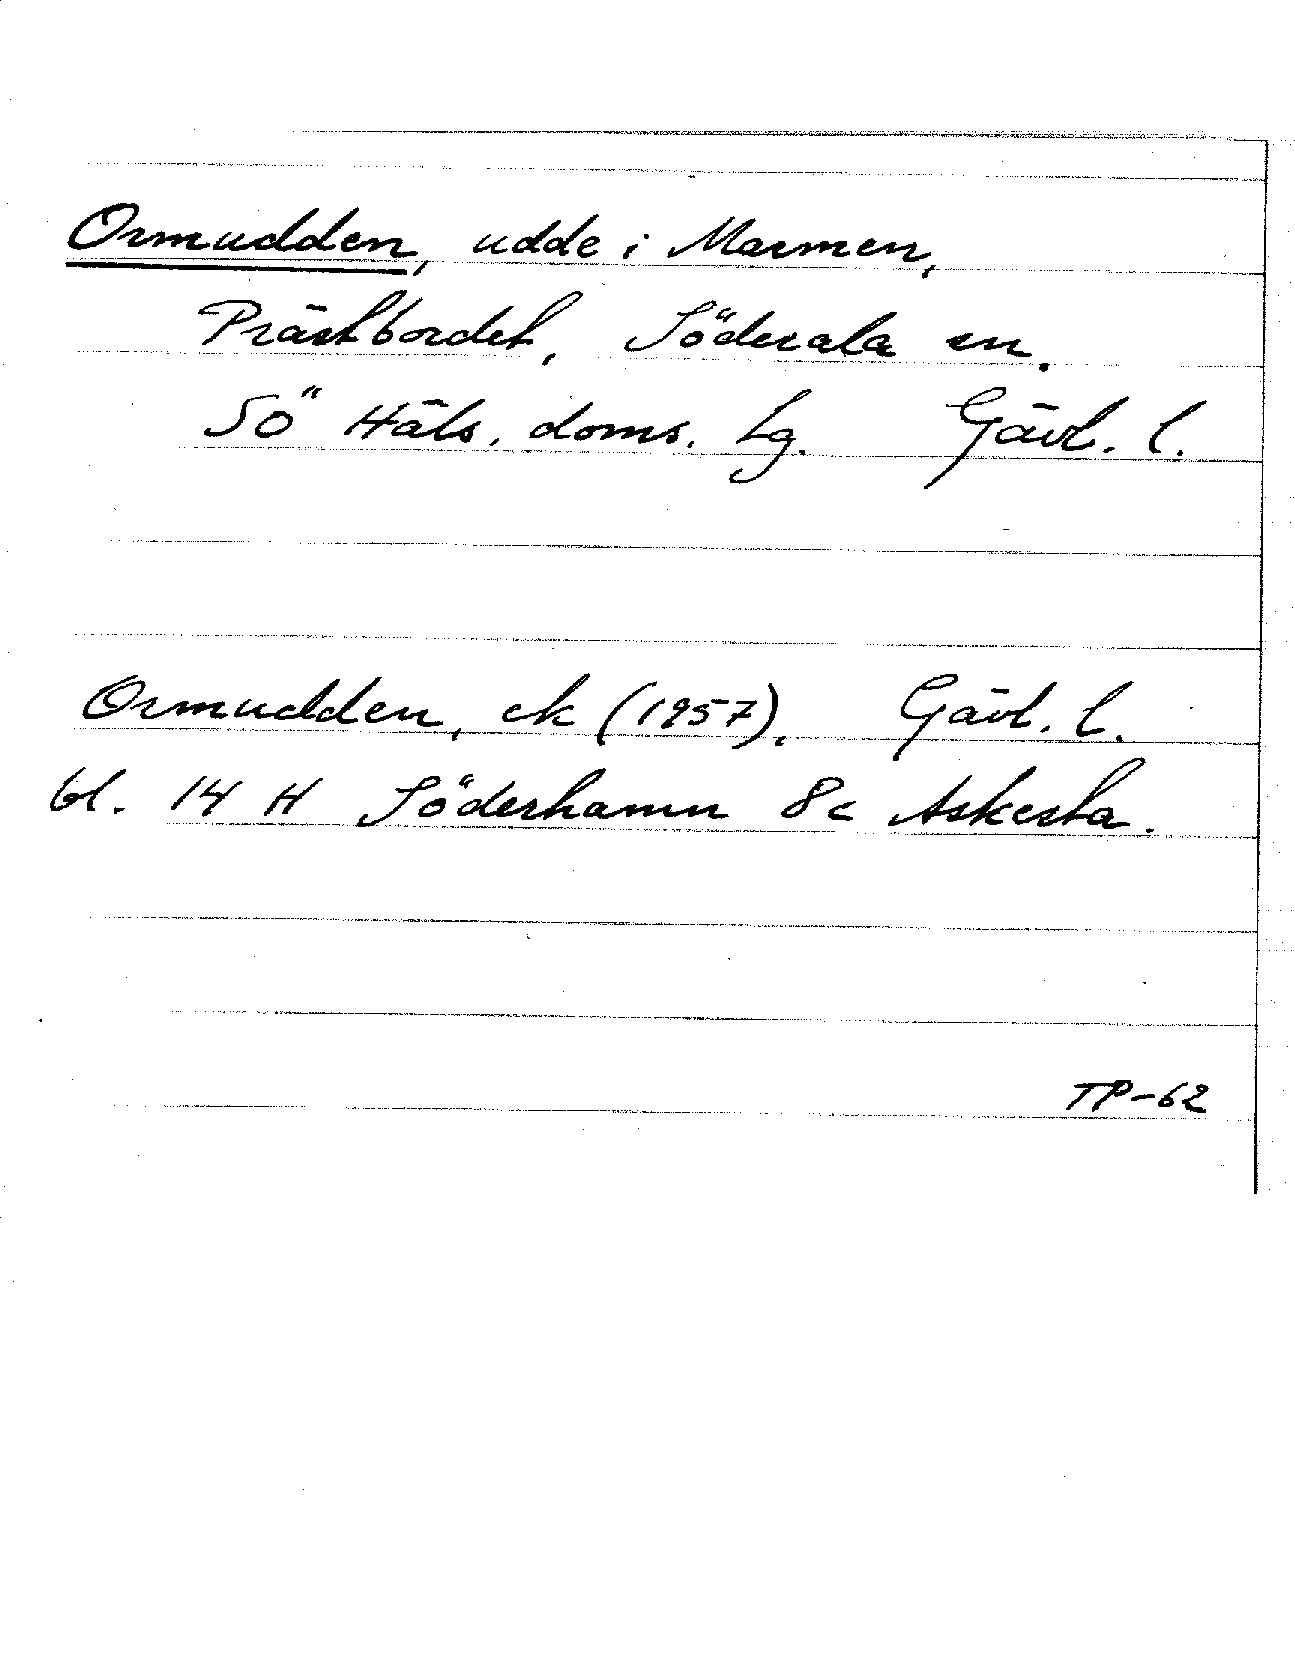 Ormudden, udde i Marmen,
Prästbordet, Söderala sn.
SÖ Häls. doms. lg. Gävl. l.
Ormudden, ek (1957). Gävl. l.
bl. 14 H Söderhamn 8c Askesta.
TP-62